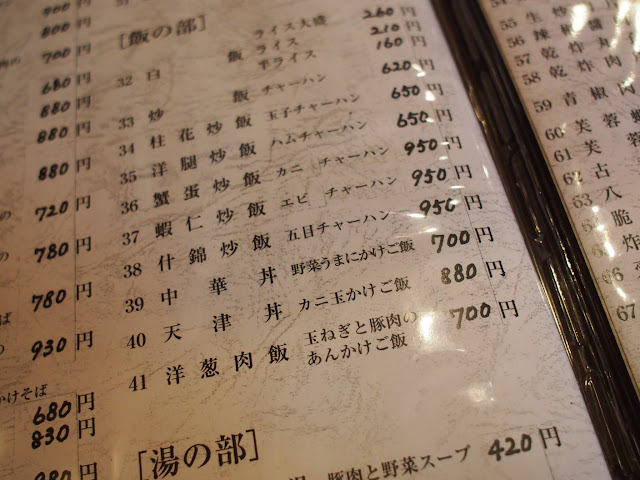 900円
800円
700円
680円
880円
880円
880円
720円
780円
780円
930円
かけそば
680円
830円
980円
[飯の部]
ライス大盛 260円
32 白 飯 ライス 210円
半ライス 160円
33 炒 飯 チャーハン 620円
34 桂花炒飯 玉子チャーハン 650円
35 洋腿炒飯 ハムチャーハン 650円
36 蟹蛋炒飯 カニ チャーハン 950円
37 蝦仁炒飯 エビ チャーハン 950円
38 什錦炒飯 五目チャーハン 950円
39 中華丼 野菜うまにかけご飯 700円
40 天津丼 カニ玉かけご飯 880円
41 洋葱肉飯 玉ねぎと豚肉のあんかけご飯 700円
[湯の部]
豚肉と野菜スープ 420円
55 生炸
56 辣椒醬
57 乾炸丸
58 乾炸肉
59 青椒肉
60 芙蓉蟹
61 芙蓉
62 古
63 八
脆
炸
67